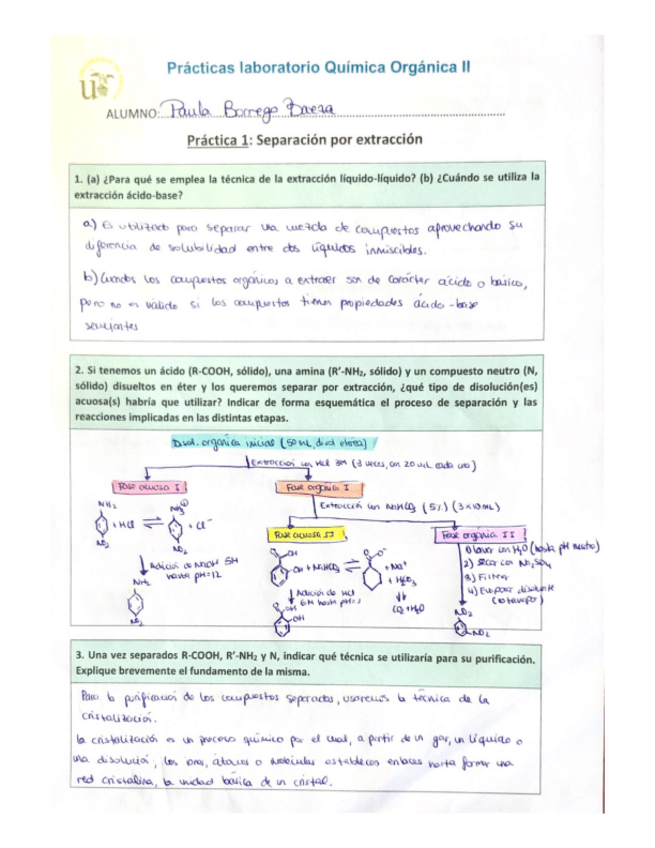 Prácticas laboratorio Química Orgánica II
ALUMNO: Paula Borrego Baena
Práctica 1: Separación por extracción
1. (a) ¿Para qué se emplea la técnica de la extracción líquido-líquido? (b) ¿Cuándo se utiliza la
extracción ácido-base?
a) Es utilizado para separar una mezcla de compuestos aprovechando su
diferencia de solubilidad entre dos líquidos inmiscibles.
b) Cuando los compuestos orgánicos a extraer son de carácter ácido o básico,
pero no es válido si los compuestos tienen propiedades ácido-base
semejantes
2. Si tenemos un ácido (R-COOH, sólido), una amina (R'-NH₂, sólido) y un compuesto neutro (N,
sólido) disueltos en éter y los queremos separar por extracción, ¿qué tipo de disolución(es)
acuosa(s) habría que utilizar? Indicar de forma esquemática el proceso de separación y las
reacciones implicadas en las distintas etapas.
Disol. orgánica inicial (50 mL, disol etérea)
Extracción con HCl 3M (3 veces, con 20 mL cada uno)
Fase acuosa I
Fase orgánica I
NH₂
NH₃⊕
+ HCl ⇌ + Cl⁻
NO₂
NO₂
Extracción con NaHCO₃ (5%) (3x10mL)
Fase acuosa II
Fase orgánica II
Adición de NaOH 5M
hasta pH=12
NH₂
NO₂
OH
OH + NaHCO₃ ⇌
+ Na⁺
+ H₂CO₃
CO₂ + H₂O
Adición de HCl
6M hasta pH=1
OH
OH
1) lavar con H₂O (hasta pH neutro)
2) Secar con Na₂SO₄
3) Filtrar
4) Evaporar disolvente
(rotavapor)
NO₂
NO₂
3. Una vez separados R-COOH, R'-NH₂ y N, indicar qué técnica se utilizaría para su purificación.
Explique brevemente el fundamento de la misma.
Para la purificación de los compuestos separados, usaremos la técnica de la
cristalización.
la cristalización es un proceso químico por el cual, a partir de un gas, un líquido o
una disolución, los iones, átomos o moléculas establecen enlaces hasta formar una
red cristalina, la unidad básica de un cristal.